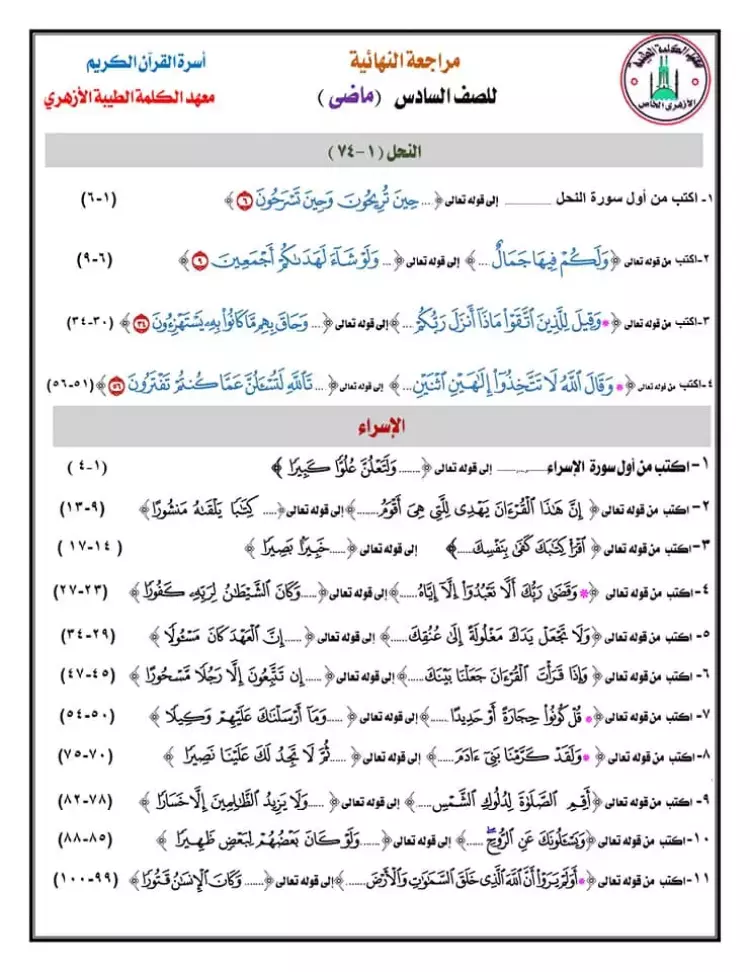 مراجعة النهائية
أسرة القرآن الكريم
للصف السادس (ماضى)
معهد الكلمة الطيبة الأزهري
معهد الكلمة الطيبة
الأزهرى الخاص
النحل (١-٧٤)
١- اكتب من أول سورة النحل ............ إلى قوله تعالى ﴿.... حِينَ تُرِيحُونَ وَحِينَ تَسْرَحُونَ ٦﴾ (١-٦)
٢-اكتب من قوله تعالى ﴿وَلَكُمْ فِيهَا جَمَالٌ ....﴾ إلى قوله تعالى ﴿... وَلَوْ شَاءَ لَهَدَىٰكُمْ أَجْمَعِينَ ٩﴾ (٦-٩)
٣-اكتب من قوله تعالى ﴿۞وَقِيلَ لِلَّذِينَ ٱتَّقَوْا۟ مَاذَآ أَنزَلَ رَبُّكُمْ ...﴾إلى قوله تعالى ﴿... وَحَاقَ بِهِم مَّا كَانُوا۟ بِهِۦ يَسْتَهْزِءُونَ ٣٤﴾ (٣٠-٣٤)
٤-اكتب من قوله تعالى ﴿۞وَقَالَ ٱللَّهُ لَا تَتَّخِذُوٓا۟ إِلَٰهَيْنِ ٱثْنَيْنِ ...﴾ إلى قوله تعالى﴿... تَٱللَّهِ لَتُسْـَٔلُنَّ عَمَّا كُنتُمْ تَفْتَرُونَ ٥٦﴾(٥١-٥٦)
الإسراء
١- اكتب من أول سورة الإسراء............ إلى قوله تعالى ﴿....... وَلَتَعْلُنَّ عُلُوًّا كَبِيرًا ﴾ (١-٤)
٢- اكتب من قوله تعالى ﴿ إِنَّ هَٰذَا ٱلْقُرْءَانَ يَهْدِى لِلَّتِى هِىَ أَقْوَمُ.......﴾إلى قوله تعالى﴿..... كِتَٰبًا يَلْقَىٰهُ مَنشُورًا﴾ (٩-١٣)
٣- اكتب من قوله تعالى ﴿ ٱقْرَأْ كِتَٰبَكَ كَفَىٰ بِنَفْسِكَ.....﴾ إلى قوله تعالى ﴿......خَبِيرًۢا بَصِيرًا ﴾ (١٤-١٧)
٤- اكتب من قوله تعالى ﴿۞ وَقَضَىٰ رَبُّكَ أَلَّا تَعْبُدُوٓا۟ إِلَّآ إِيَّاهُ......﴾إلى قوله تعالى ﴿......وَكَانَ ٱلشَّيْطَٰنُ لِرَبِّهِۦ كَفُورًا ﴾ (٢٣-٢٧)
٥- اكتب من قوله تعالى ﴿وَلَا تَجْعَلْ يَدَكَ مَغْلُولَةً إِلَىٰ عُنُقِكَ......﴾ إلى قوله تعالى ﴿ ......إِنَّ ٱلْعَهْدَ كَانَ مَسْـُٔولًا ﴾ (٢٩-٣٤)
٦- اكتب من قوله تعالى ﴿ وَإِذَا قَرَأْتَ ٱلْقُرْءَانَ جَعَلْنَا بَيْنَكَ......﴾إلى قوله تعالى ﴿ ......إِن تَتَّبِعُونَ إِلَّا رَجُلًا مَّسْحُورًا ﴾ (٤٥-٤٧)
٧- اكتب من قوله تعالى ﴿۞ قُلْ كُونُوا۟ حِجَارَةً أَوْ حَدِيدًا ......﴾إلى قوله تعالى ﴿ ......وَمَآ أَرْسَلْنَٰكَ عَلَيْهِمْ وَكِيلًا ﴾ (٥٠-٥٤)
٨- اكتب من قوله تعالى ﴿ ۞وَلَقَدْ كَرَّمْنَا بَنِىٓ ءَادَمَ......﴾ إلى قوله تعالى ﴿ ......ثُمَّ لَا تَجِدُ لَكَ عَلَيْنَا نَصِيرًا ﴾ (٧٠-٧٥)
٩- اكتب من قوله تعالى ﴿أَقِمِ ٱلصَّلَوٰةَ لِدُلُوكِ ٱلشَّمْسِ......﴾ إلى قوله تعالى ﴿ ......وَلَا يَزِيدُ ٱلظَّٰلِمِينَ إِلَّا خَسَارًا ﴾ (٧٨-٨٢)
١٠- اكتب من قوله تعالى ﴿وَيَسْـَٔلُونَكَ عَنِ ٱلرُّوحِ ۖ ......﴾ إلى قوله تعالى ﴿.......وَلَوْ كَانَ بَعْضُهُمْ لِبَعْضٍ ظَهِيرًا ﴾ (٨٥-٨٨)
١١- اكتب من قوله تعالى ﴿۞ أَوَلَمْ يَرَوْا۟ أَنَّ ٱللَّهَ ٱلَّذِى خَلَقَ ٱلسَّمَٰوَٰتِ وَٱلْأَرْضَ......﴾إلى قوله تعالى ﴿....... وَكَانَ ٱلْإِنسَٰنُ قَتُورًا﴾ (٩٩-١٠٠)